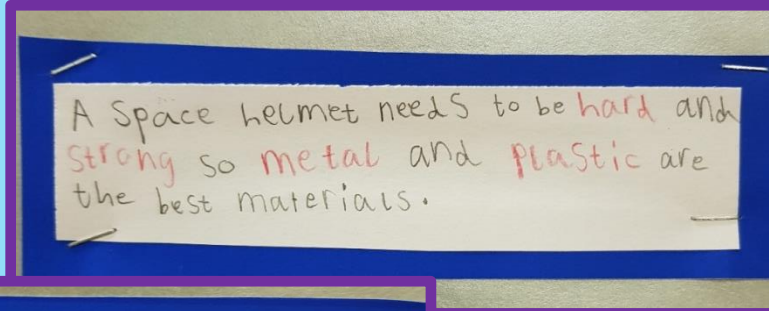 A Space helmet needs to be hard and
strong so metal and plastic are
the best materials.